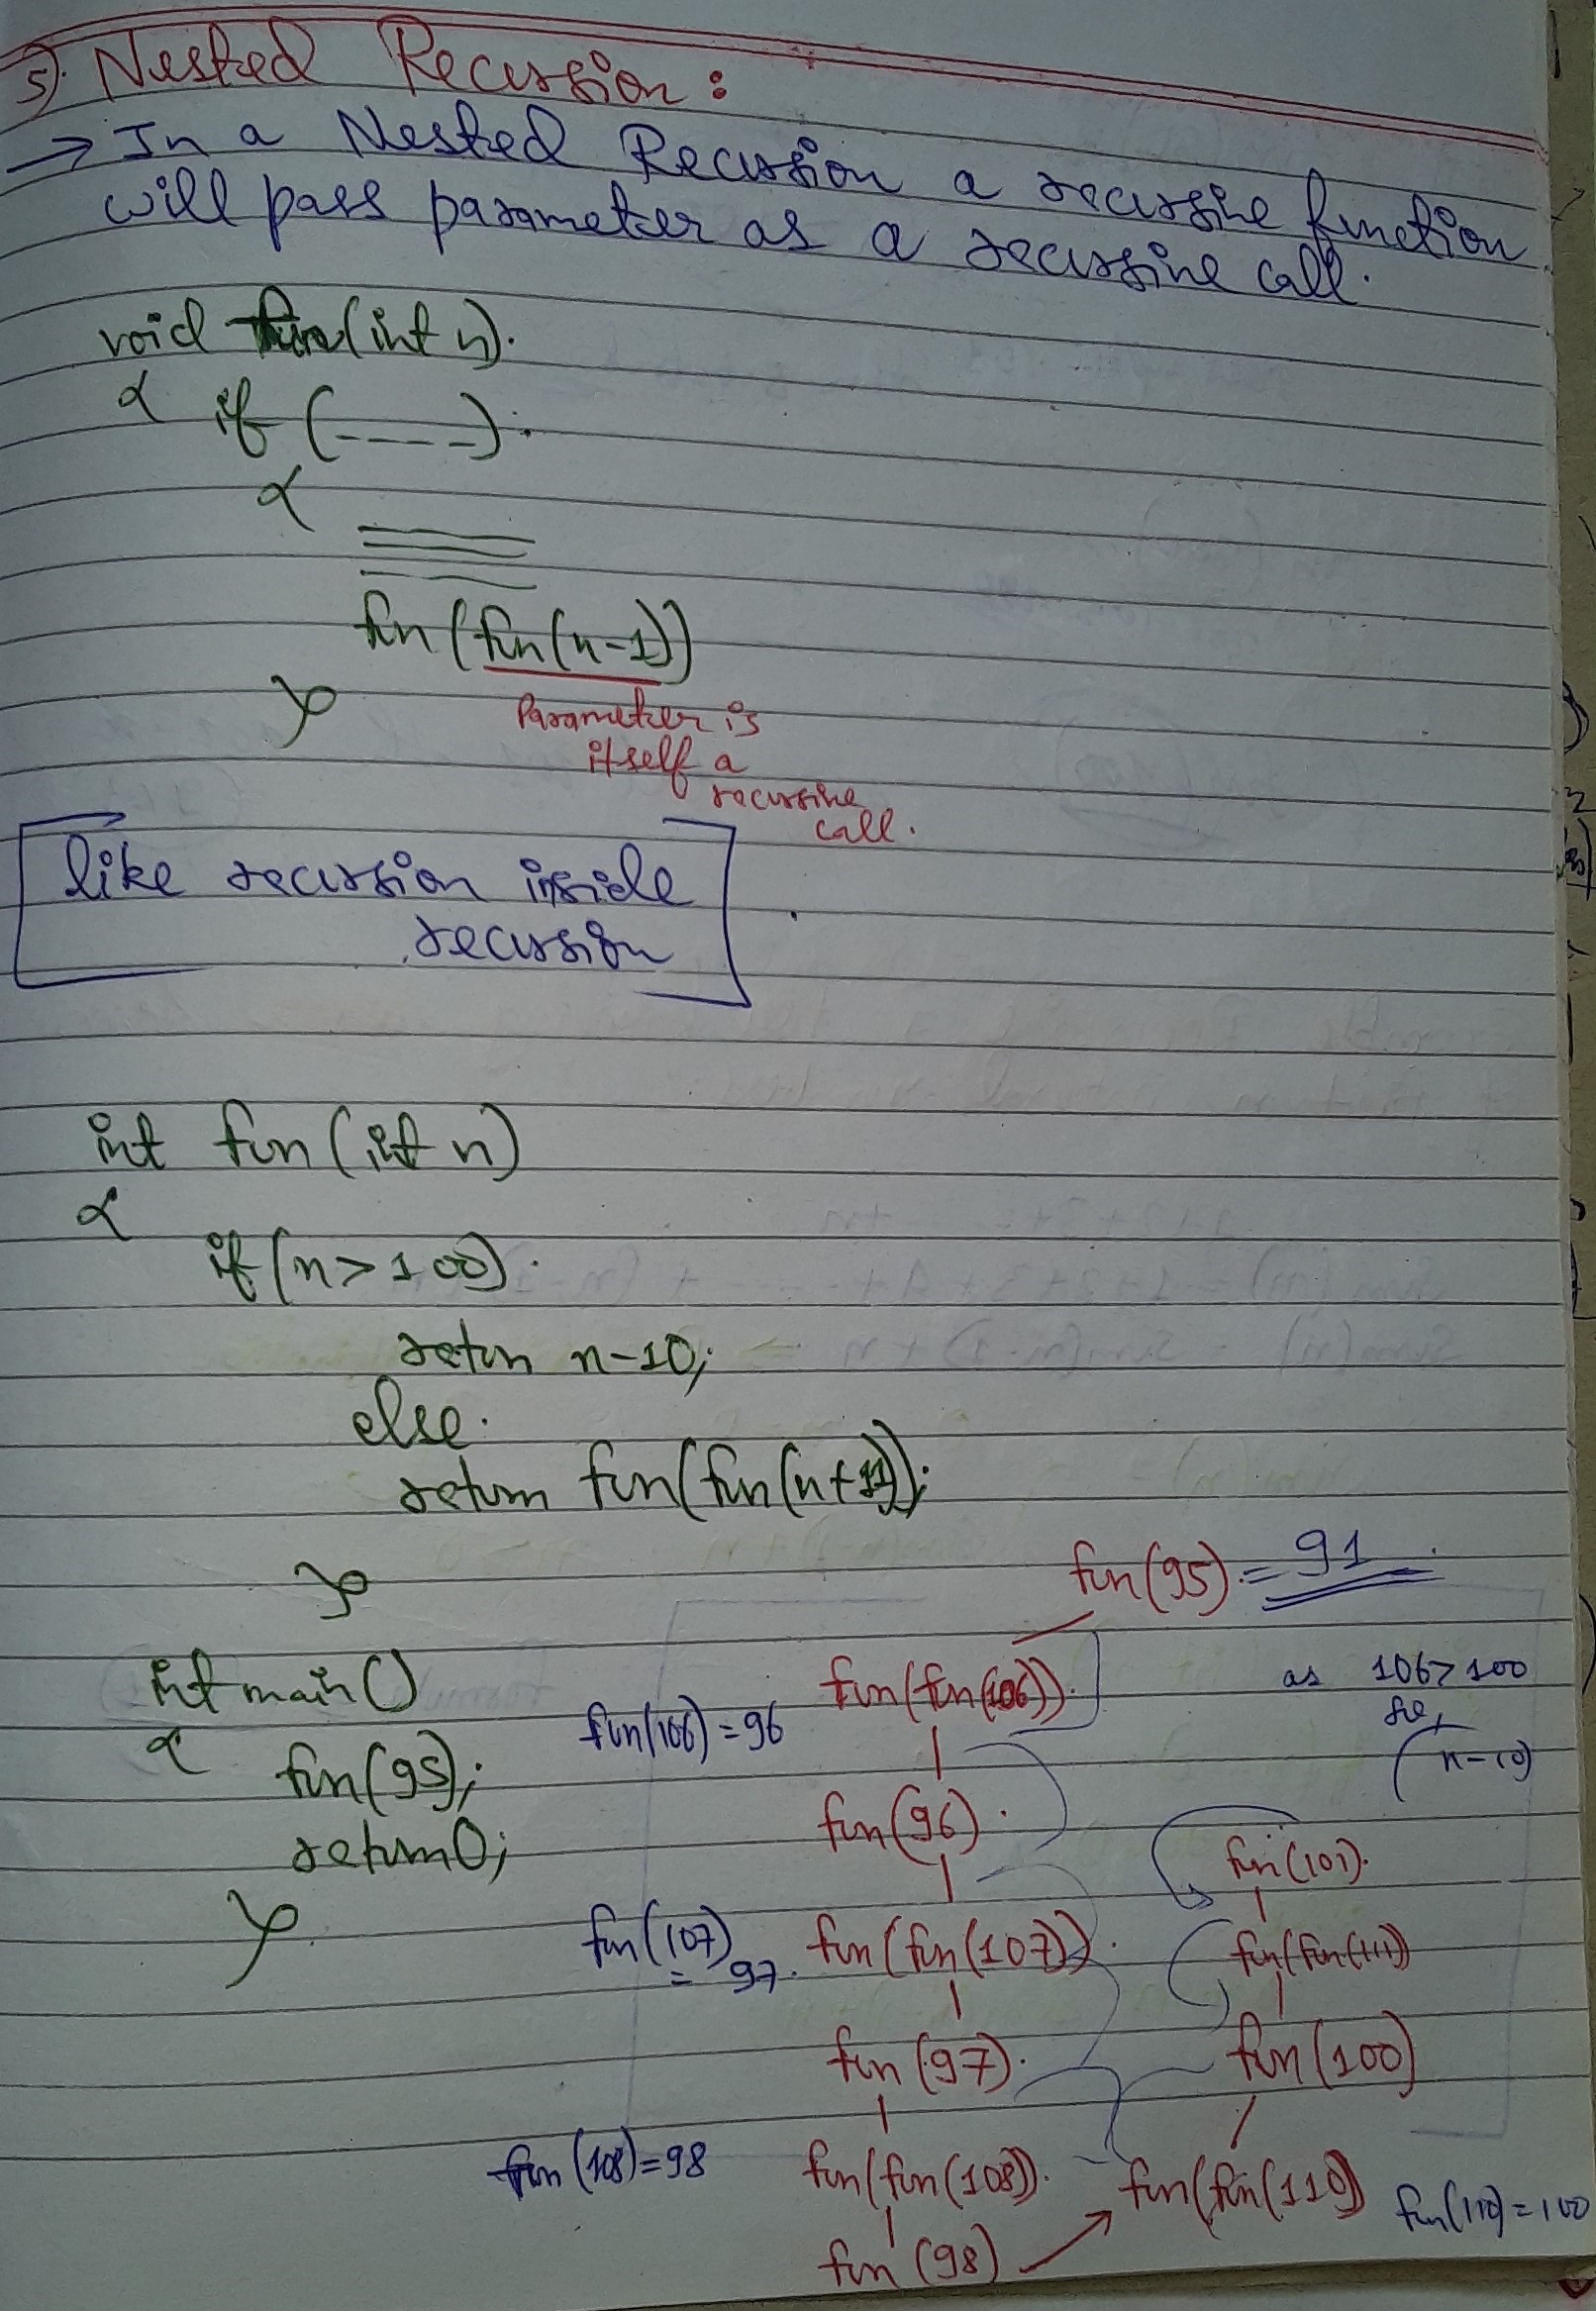 5). Nested Recursion :
→ In a Nested Recursion a recursive function
will pass parameter as a recursive call.
void fun(int n).
{ if (-----).
{
fun(fun(n-1))
}
Parameter is
itself a
recursive
call.
[like recursion inside
recursion]
int fun(int n)
{
if(n>100).
return n-10;
else.
return fun(fun(n+11));
}
fun(95).=91
int main()
{ fun(95);
return 0;
}
fun(fun(106)).
as 106>100
so,
(n-10)
fun(106)=96
fun(96).
fun(107)
= 97.
fun(fun(107)).
fun(97).
fun(108)=98
fun(fun(108)).
fun(98)
fun(101).
fun(fun(111))
fun(100)
fun(fun(110))
fun(110)=100